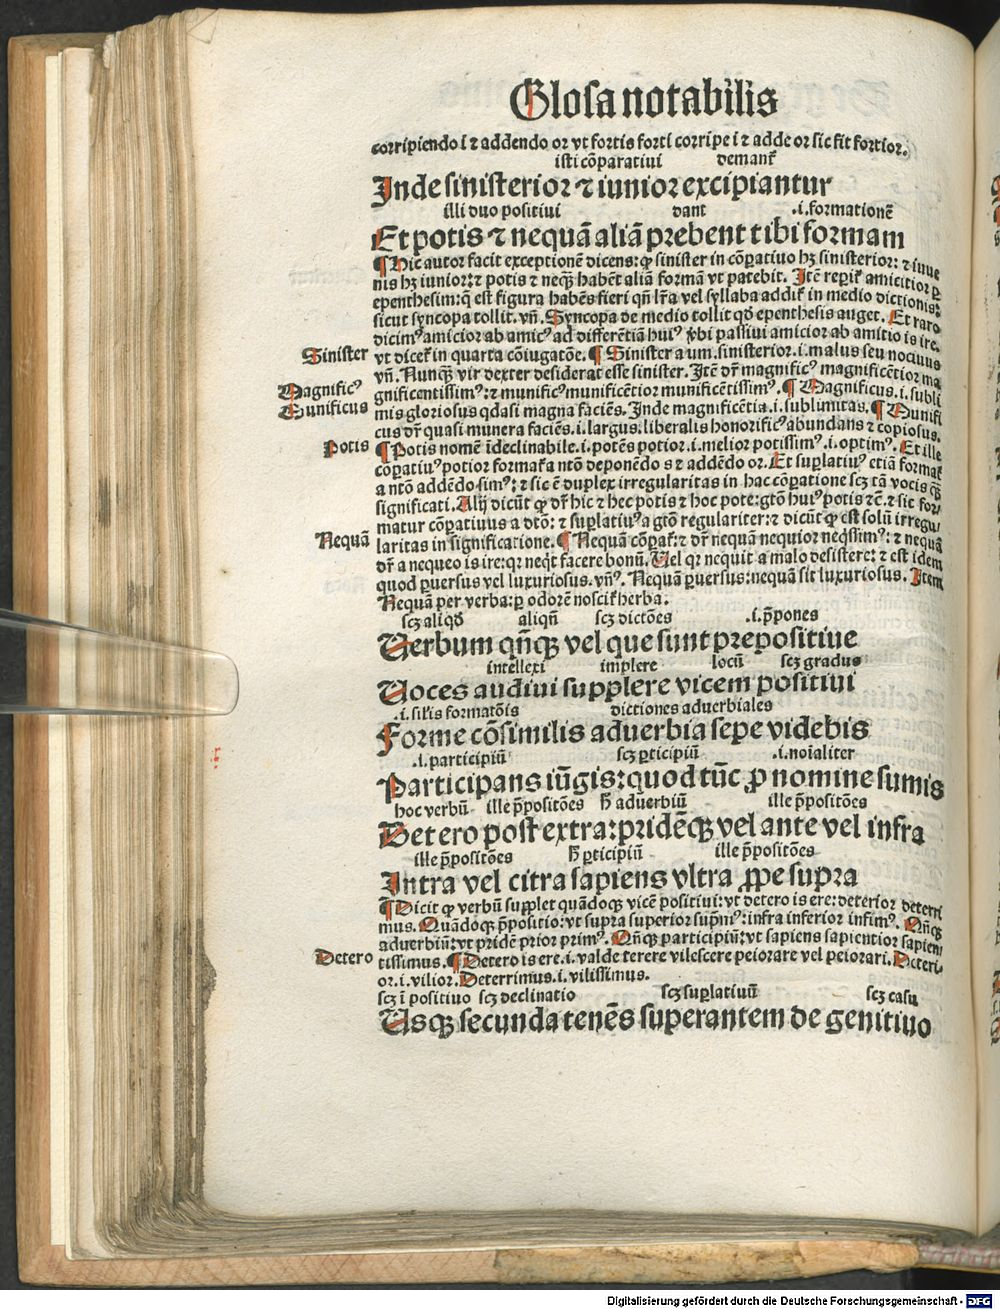 Glosa notabilis
corripiendo i ⁊ addendo or vt fortis forti corripe i ⁊ adde or sic fit fortior.
isti cōparatiui demant᷑
Inde sinisterior ⁊ iunior excipiantur
illi duo positiui dant .i. formationē
Et potis ⁊ nequā aliā prebent tibi formam
¶ Hic autor facit exceptionē dicens: ꝙ sinister in cōparatiuo hꝫ sinisterior: ⁊ iuue
nis hꝫ iunior: ⁊ potis ⁊ neqȝ̄ habēt aliā formā vt patebit. Itē repit᷑ amicitior ꝑ
epenthesim: q̄ est figura habēs fieri qn̄ lr̄a vel syllaba addit᷑ in medio dictionis:
sicut syncopa tollit. vn̄. Syncopa de medio tollit qd̄ epenthesis auget. Et raro
dicimꝰ amicior ab amicꝰ ad differētiā huiꝰ ꝟbi passiui amicior ab amitio is ire.
Sinister vt dicet᷑ in quarta cōiugatōe. ¶ Sinister a um. sinisterior .i. malus seu nocuus
vn̄. Nunqȝ̄ vir dexter desiderat esse sinister. Itē dr̄ magnificꝰ magnificētior ma
Magnificꝰ gnificentissimꝰ: ⁊ munificꝰ munificētior munificētissimꝰ. ¶ Magnificus .i. subli
Munificus mis gloriosus qdasi magna faciēs. Inde magnificētia .i. sublimitas. ¶ Munifi
cus dr̄ quasi munera faciēs .i. largus. liberalis honorificꝰ abundans ⁊ copiosus.
Potis ¶ Potis nomē īdeclinabile .i. potēs potior .i. melior potissimꝰ .i. optimꝰ. Et ille
cōparatiuꝰ potior format᷑ a ntō deponēdo s ⁊ addēdo or. Et suꝑlatiuꝰ etiā format᷑
a ntō addēdo simꝰ: ⁊ sic ē duplex irregularitas in hac cōparatione scꝫ tā vocis qȝ̄
significati. Alij dicūt ꝙ dr̄ hic ⁊ hec potis ⁊ hoc pote: gtō huiꝰ potis ⁊c̄. ⁊ sic for/
matur cōparatiuus a dtō: ⁊ suꝑlatiuꝰ a gtō regulariter: ⁊ dicūt ꝙ est solū irregu/
Nequā laritas in significatione. ¶ Nequā cōparat᷑: ⁊ dr̄ nequā nequior neqssimꝰ: ⁊ nequā
dr̄ a nequeo is ire: qr neqt facere bonū. Vel qr nequit a malo desistere: ⁊ est idem
quod ꝑuersus vel luxuriosus. vn̄ꝰ. Nequā ꝑuersus: nequā sit luxuriosus. Item
Nequā per verba: ꝑ odorē noscit᷑ herba.
scꝫ aliqd̄ aliqn̄ scꝫ dictōes .i. p̄pones
Verbum qn̄qȝ vel que sunt prepositiue
intellexi implere locū scꝫ gradus
Voces audiui supplere vicem positiui
.i. sil̄is formatōis dictiones aduerbiales
Forme cōsimilis aduerbia sepe videbis
.i. participiū scꝫ ꝑticipiū .i. noīaliter
Participans iūgis: quod tūc ꝓ nomine sumis
hoc verbū ille p̄positōes h̄ aduerbiū ille p̄positōes
Detero post extra: pridēqȝ vel ante vel infra
ille p̄positōes h̄ ꝑticipiū ille p̄positōes
Intra vel citra sapiens vltra ꝓpe supra
¶ Dicit ꝙ verbū supplet quādoqȝ vicē positiui: vt detero is ere: deterior deterri
mus. Quādoqȝ p̄positio: vt supra superior sup̄mꝰ: infra inferior infimꝰ. Qn̄qȝ
aduerbiū: vt pridē prior primꝰ. Qn̄qȝ participiū: vt sapiens sapientior sapien/
Detero tissimus. ¶ Detero is ere .i. valde terere vilescere peiorare vel peiorari. Deteri-
or .i. vilior. Deterrimus .i. vilissimus.
scꝫ ī positiuo scꝫ declinatio scꝫ suꝑlatiuū scꝫ casu
Vsqȝ secunda tenēs superantem de genitiuo
Digitalisierung gefördert durch die Deutsche Forschungsgemeinschaft - DFG